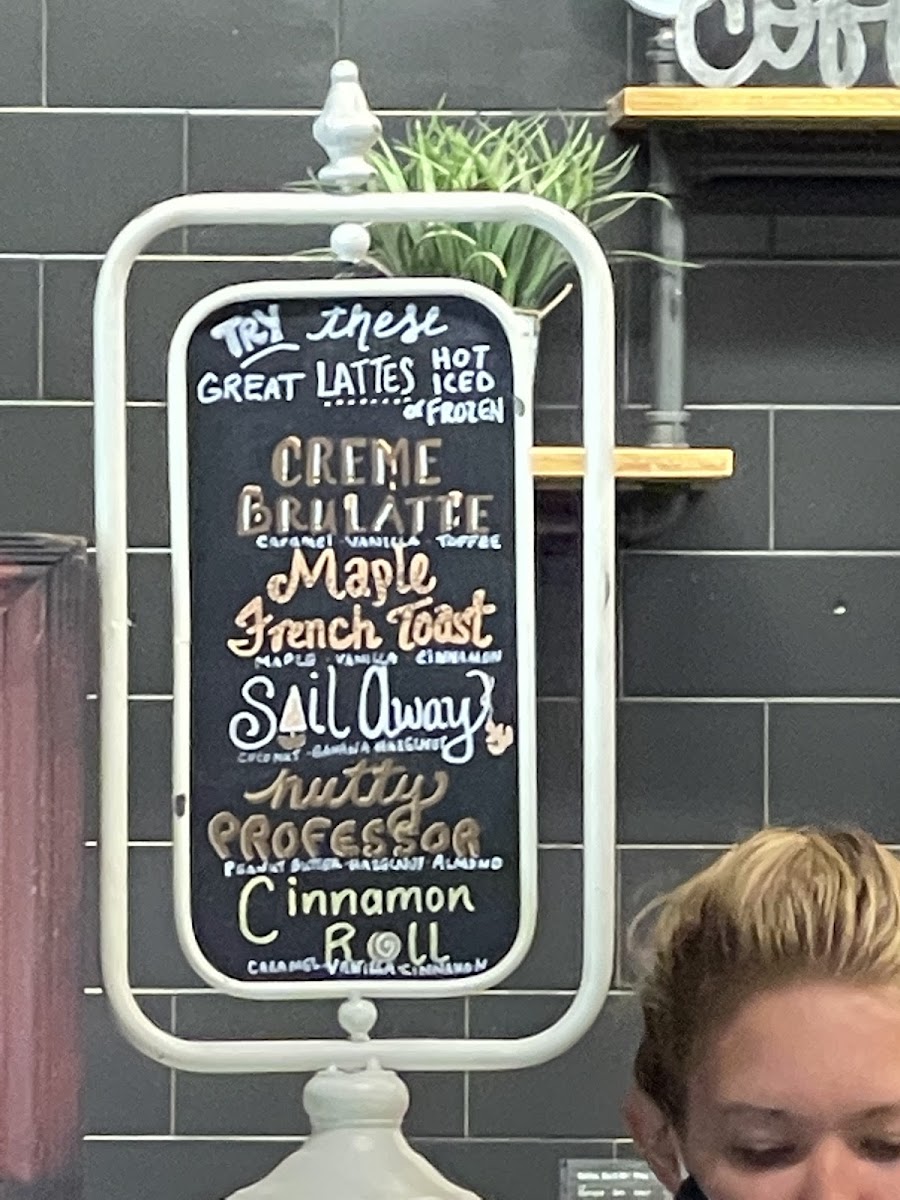 TRY these
GREAT LATTES HOT
ICED
or FROZEN
CREME
BRULATTE
CARAMEL VANILLA TOFFEE
Maple
French Toast
MAPLE - VANILLA - CINNAMON
Sail Away
COCONUT - BANANA HAZELNUT
nutty
PROFESSOR
PEANUT BUTTER - HAZELNUT ALMOND
Cinnamon
Roll
CARAMEL - VANILLA - CINNAMON